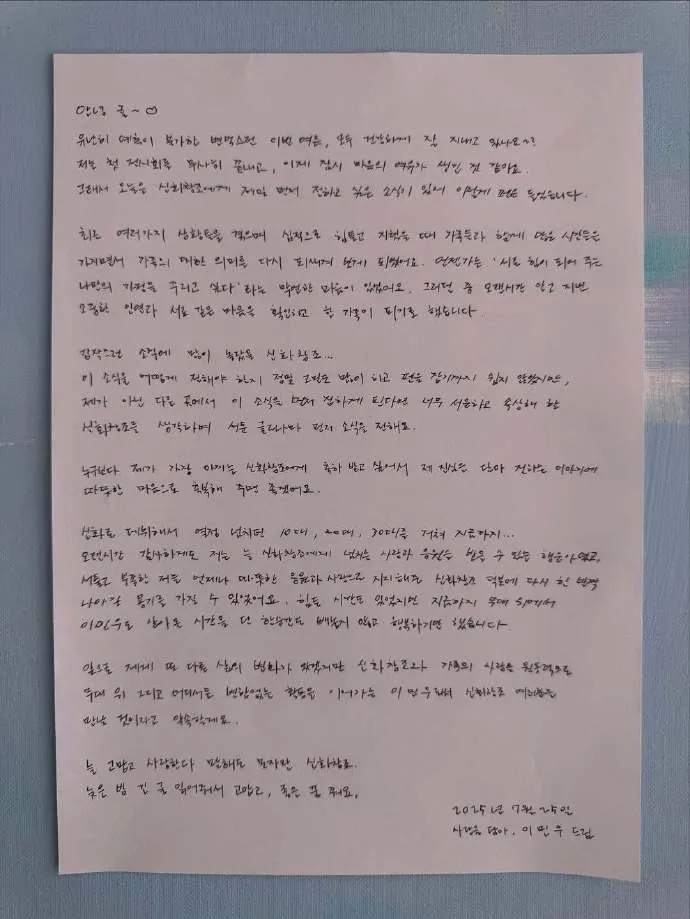 안녕 글~ ♡
유난히 예측이 불가한 변덕스런 이번 여름, 모두 건강하게 잘 지내고 있나요~?
저는 첫 전시회를 무사히 끝내고, 이제 잠시 마음의 여유가 생긴 것 같아요.
그래서 오늘은 신화창조에게 제일 먼저 전하고 싶은 소식이 있어 이렇게 펜을 들었습니다.
최근 여러가지 상황들을 겪으며 심적으로 힘들고 지쳤을 때 가족들과 함께 많은 시간들을
가지면서 가족의 대한 의미를 다시 되새기게 되었어요. 언젠가는 '서로 힘이 되어 주는
나만의 가정을 꾸리고 싶다' 라는 막연한 마음이 있었어요. 그러던 중 오랜시간 알고 지낸
소중한 인연과 서로 같은 마음을 확인하고 한 가족이 되기로 했습니다.
갑작스런 소식에 많이 놀랐을 신화창조...
이 소식을 어떻게 전해야 할지 정말 고민도 많이 하고 펜을 잡기까지 쉽지 않았지만,
제가 아닌 다른 곳에서 이 소식을 먼저 접하게 된다면 너무 서운하고 속상해 할
신화창조를 생각하며 서툰 글이나마 먼저 소식을 전해요.
누구보다 제가 가장 아끼는 신화창조에게 축하 받고 싶어서 제 진심을 담아 전하는 이야기에
따뜻한 마음으로 축복해 주면 좋겠어요.
신화로 데뷔해서 열정 넘치던 10대, 20대, 30대를 거쳐 지금까지...
오랜시간 감사하게도 저는 늘 신화창조에게 넘치는 사랑과 응원을 받을 수 있는 행운아였고,
서툴고 부족한 저를 언제나 따뜻한 응원과 사랑으로 지지해준 신화창조 덕분에 다시 한 번
나아갈 용기를 가질 수 있었어요. 힘든 시간도 있었지만 지금까지 무대 위에서
이민우로 살아온 시간을 단 한순간도 빼놓지 않고 행복하기만 했습니다.
앞으로 제게 또 다른 삶의 변화가 있겠지만 신화창조와 가족의 사랑을 원동력으로
무대 위 그리고 어디서든 변함없는 활동을 이어가는 이민우로 신화창조 여러분을
만날 것이라고 약속할게요.
늘 고맙고 사랑한다 말해도 모자란 신화창조.
늦은 밤 긴 글 읽어줘서 고맙고, 좋은 꿈 꿔요.
2025년 7월 25일
사랑을 담아, 이민우 드림